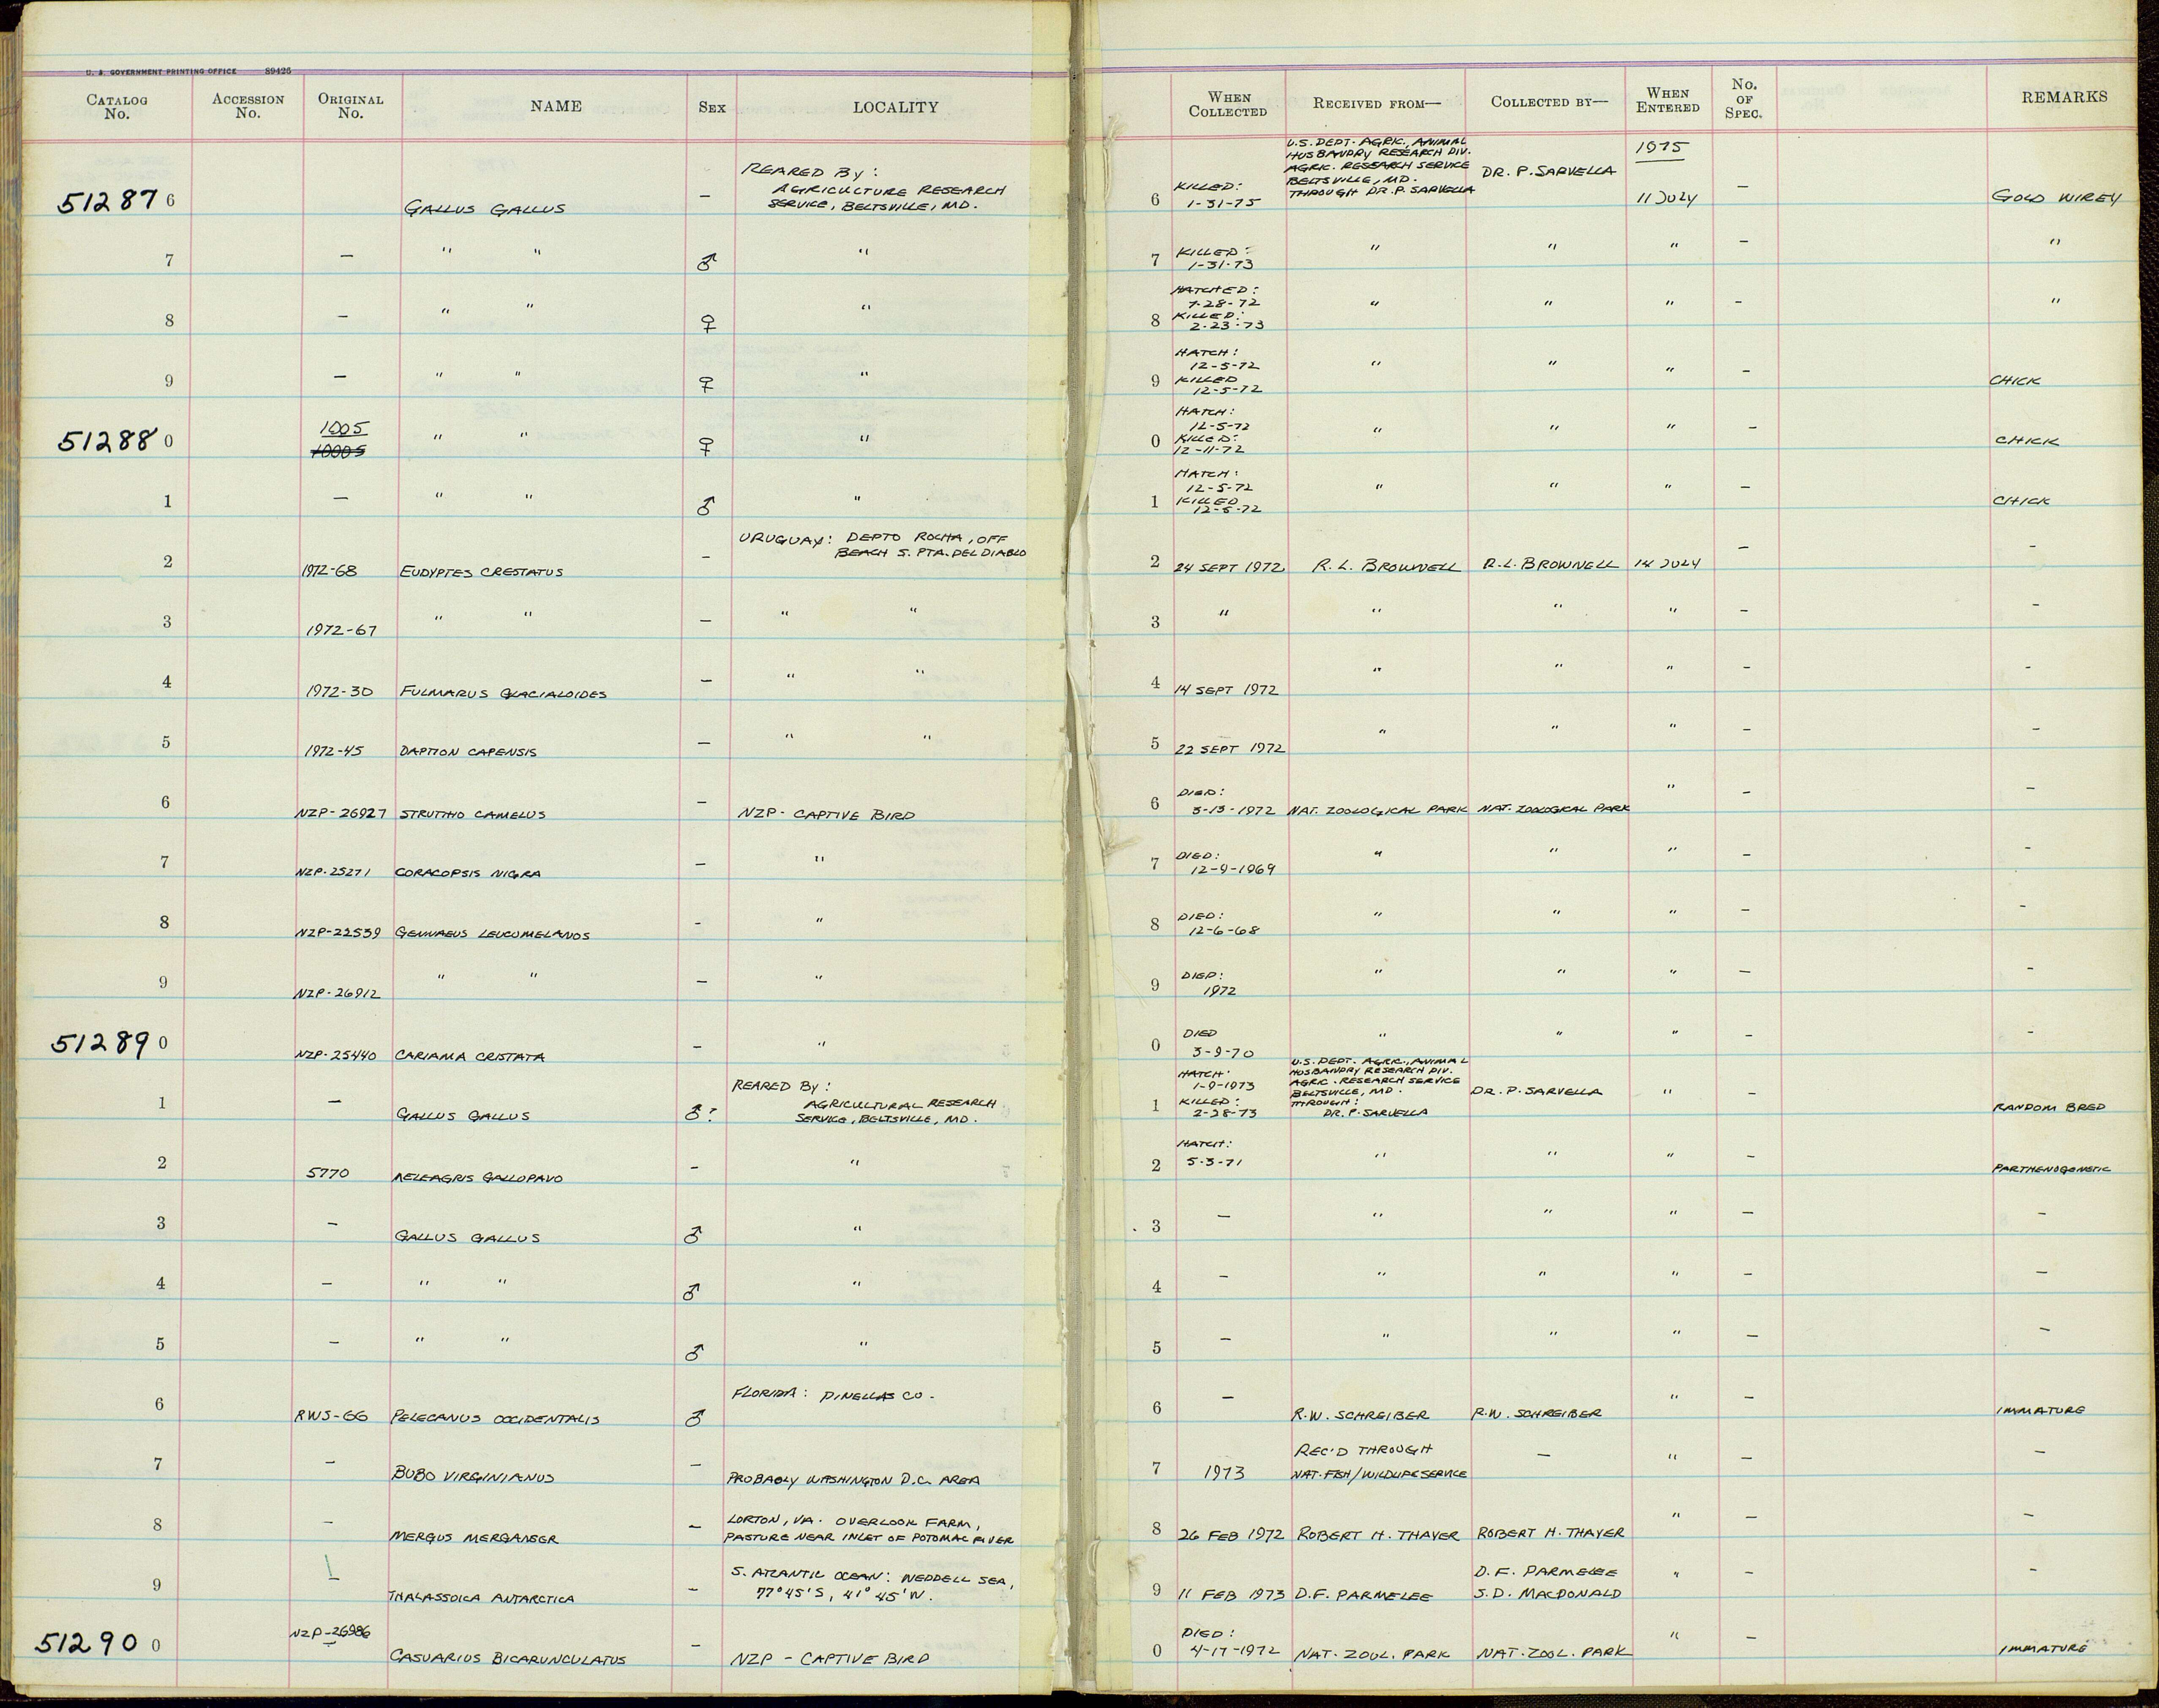 U. S. GOVERNMENT PRINTING OFFICE 89426
CATALOG No. ACCESSION No. ORIGINAL No. NAME SEX LOCALITY WHEN COLLECTED RECEIVED FROM— COLLECTED BY— WHEN ENTERED No. OF SPEC. REMARKS
512876 GALLUS GALLUS — REARED BY: AGRICULTURE RESEARCH SERVICE, BELTSVILLE, MD. 6 KILLED: 1-31-75 U.S. DEPT. AGRIC., ANIMAL HUSBANDRY RESEARCH DIV. AGRIC. RESEARCH SERVICE BELTSVILLE, MD. THROUGH DR. P. SARVELLA DR. P. SARVELLA 1975 11 JULY — GOLD WIREY
7 — " " ♂ " 7 KILLED: 1-31-73 " " " — "
8 — " " ♀ " 8 HATCHED: 7-28-72 KILLED: 2-23-73 " " " — "
9 — " " ♀ " 9 HATCH: 12-5-72 KILLED 12-5-72 " " " — CHICK
512880 1005 10005 " " ♀ " 0 HATCH: 12-5-72 KILLED: 12-11-72 " " " — CHICK
1 — " " ♂ " 1 HATCH: 12-5-72 KILLED 12-5-72 " " " — CHICK
2 1972-68 EUDYPTES CRESTATUS — URUGUAY: DEPTO ROCHA, OFF BEACH S. PTA. DEL DIABLO 2 24 SEPT 1972 R. L. BROWNELL R. L. BROWNELL 14 JULY — —
3 1972-67 " " — " " 3 " " " " — —
4 1972-30 FULMARUS GLACIALOIDES — " " 4 14 SEPT 1972 " " " — —
5 1972-45 DAPTION CAPENSIS — " " 5 22 SEPT 1972 " " " — —
6 NZP-26927 STRUTHIO CAMELUS — NZP - CAPTIVE BIRD 6 DIED: 3-13-1972 NAT. ZOOLOGICAL PARK NAT. ZOOLOGICAL PARK " — —
7 NZP-25271 CORACOPSIS NIGRA — " 7 DIED: 12-9-1969 " " " — —
8 NZP-22539 GENNAEUS LEUCOMELANOS - " 8 DIED: 12-6-68 " " " — -
9 NZP-26912 " " — " 9 DIED: 1972 " " " — —
512890 NZP-25440 CARIAMA CRISTATA — " 0 DIED 3-9-70 " " " — —
1 — GALLUS GALLUS ♂? REARED BY: AGRICULTURAL RESEARCH SERVICE, BELTSVILLE, MD. 1 HATCH: 1-9-1973 KILLED: 2-28-73 U.S. DEPT. AGRIC., ANIMAL HUSBANDRY RESEARCH DIV. AGRIC. RESEARCH SERVICE BELTSVILLE, MD. THROUGH: DR. P. SARVELLA DR. P. SARVELLA " — RANDOM BRED
2 5770 MELEAGRIS GALLOPAVO — " 2 HATCH: 5-3-71 " " " — PARTHENOGENETIC
3 — GALLUS GALLUS ♂ " 3 — " " " — —
4 — " " ♂ " 4 — " " " — —
5 — " " ♂ " 5 — " " " — —
6 RWS-66 PELECANUS OCCIDENTALIS ♂ FLORIDA: PINELLAS CO. 6 — R.W. SCHREIBER R.W. SCHREIBER " — IMMATURE
7 — BUBO VIRGINIANUS — PROBABLY WASHINGTON D.C. AREA 7 1973 REC'D THROUGH NAT. FISH/WILDLIFE SERVICE — " — —
8 — MERGUS MERGANSER — LORTON, VA. OVERLOOK FARM, PASTURE NEAR INLET OF POTOMAC RIVER 8 26 FEB 1972 ROBERT H. THAYER ROBERT H. THAYER " — —
9 — THALASSOICA ANTARCTICA — S. ATLANTIC OCEAN: WEDDELL SEA, 77°45'S, 41°45'W. 9 11 FEB 1973 D.F. PARMELEE D.F. PARMELEE S.D. MACDONALD " — —
512900 NZP-26986 CASUARIUS BICARUNCULATUS — NZP - CAPTIVE BIRD 0 DIED: 4-17-1972 NAT. ZOOL. PARK NAT. ZOOL. PARK " — IMMATURE